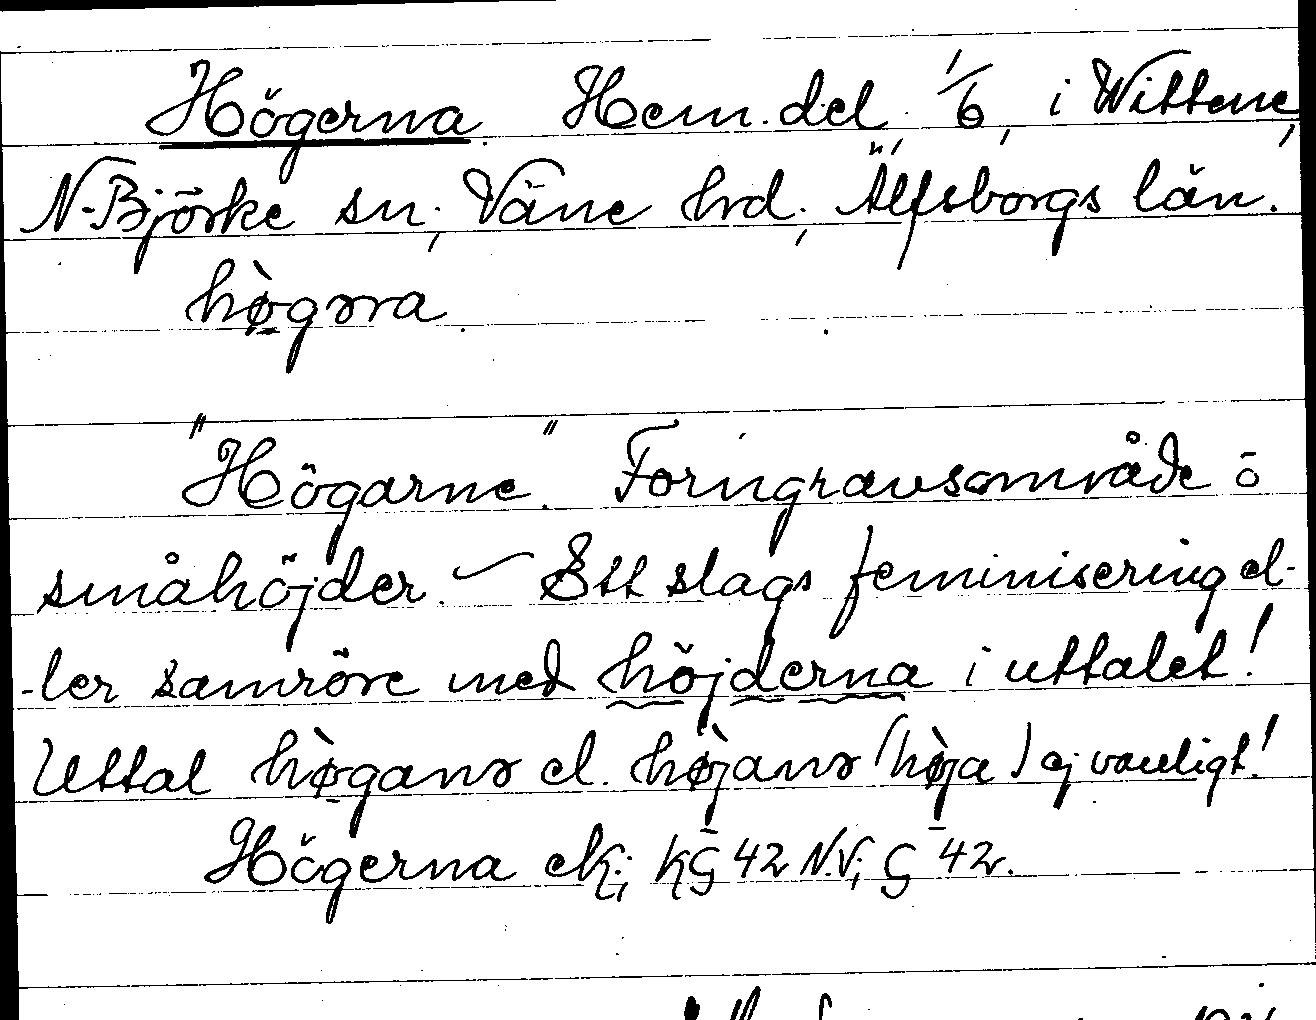 Högerna. Hem.del 1/6, i Wittene,
N. Björke sn; Väne hrd; Älfsborgs län.
hø̀gərna.
"Högarne". Forngravsområde ō
småhöjder. – Ett slags feminisering el-
-ler samröre med höjderna i uttalet!
Uttal hø̀ganə el. hø̀janə (hø̀ja) ej vanligt!
Högerna ek; 42 N.V; 42.